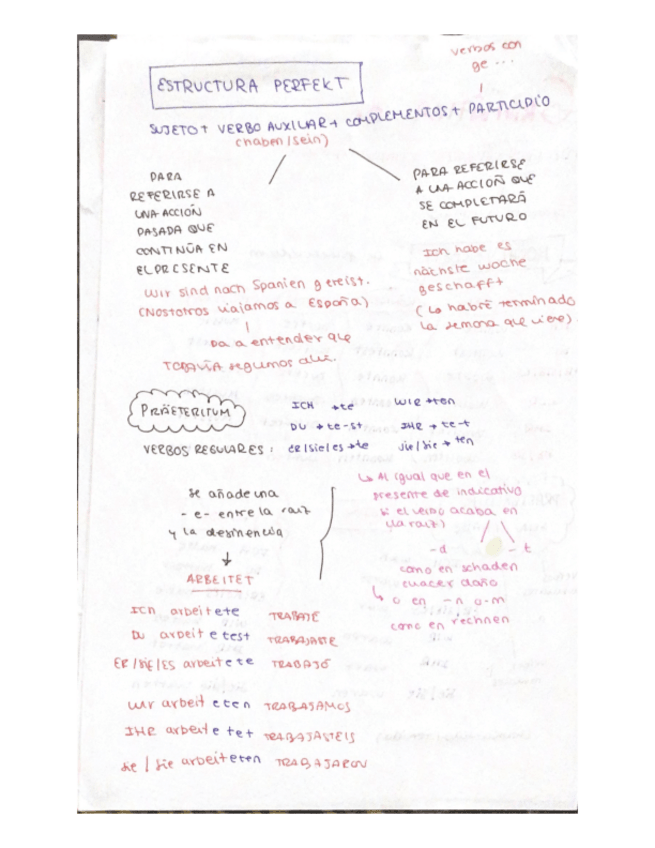 verbos con
ge...
ESTRUCTURA PERFEKT
SUJETO + VERBO AUXILIAR + COMPLEMENTOS + PARTICIPIO
(haben/sein)
PARA
REFERIRSE A
UNA ACCIÓN
PASADA QUE
CONTINÚA EN
EL PRESENTE
PARA REFERIRSE
A UNA ACCIÓN QUE
SE COMPLETARÁ
EN EL FUTURO
Wir sind nach Spanien gereist.
(Nostotros viajamos a España)
Da a entender que
TODAVÍA seguimos allí.
Ich habe es
nächste woche
geschafft
(Lo habré terminado
la semana que viene)
PRÄETERITUM
VERBOS REGULARES:
ICH +te
DU + te-st
er/sie/es +te
WIR +ten
IHR + te-t
sie/Sie + ten
se añade una
- e- entre la raíz
y la desinencia
ARBEITET
↳ Al igual que en el
presente de indicativo
si el verbo acaba en
(la raíz)
-d
- t
como en schaden
↳ o en -n o -m
como en rechnen
Ich arbeitete TRABAJÉ
Du arbeitetest TRABAJASTE
ER/SIE/ES arbeitete TRABAJÓ
wir arbeiteten TRABAJAMOS
IHR arbeitetet TRABAJASTEIS
sie/Sie arbeiteten TRABAJARON